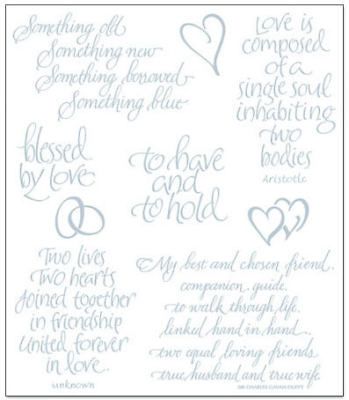 Something old
Something new
Something borrowed
Something blue
Love is
composed
of a
single soul
inhabiting
two
bodies
Aristotle
blessed
by love
to have
and
to hold
Two lives
Two hearts
Joined together
in friendship
United forever
in love.
unknown
My best and chosen friend,
companion, guide,
to walk through life,
linked hand in hand...
two equal, loving friends,
true husband and true wife.
SIR CHARLES GAVAN DUFFY